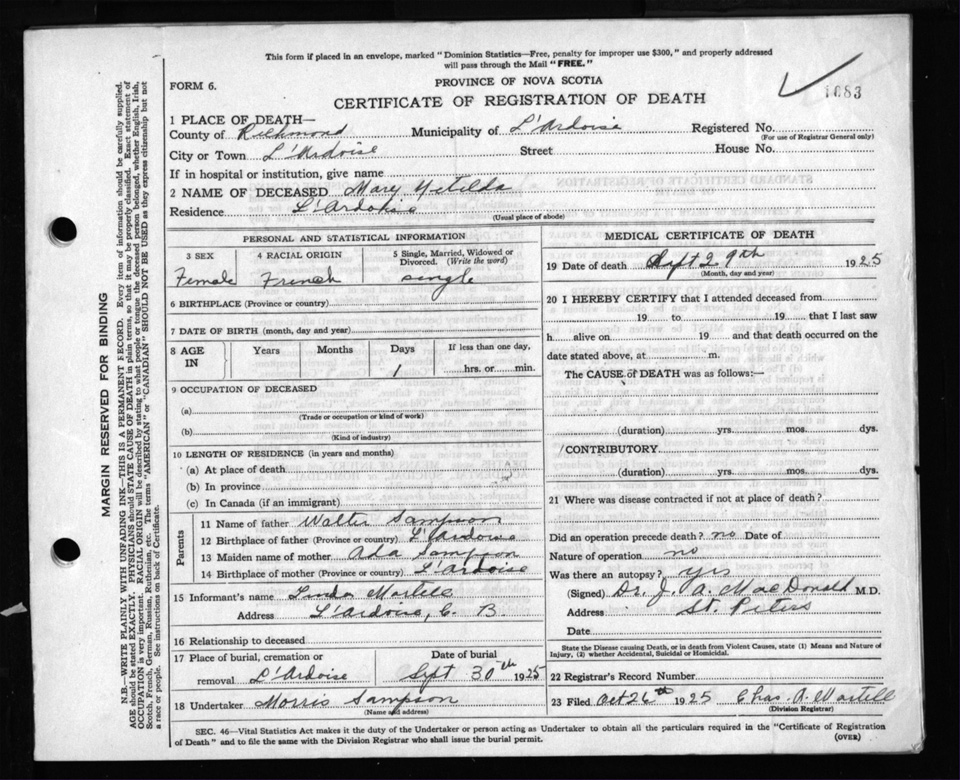 This form if placed in an envelope, marked "Dominion Statistics—Free, penalty for improper use $300," and properly addressed
will pass through the Mail "FREE."
FORM 6.
PROVINCE OF NOVA SCOTIA
CERTIFICATE OF REGISTRATION OF DEATH
1683
1 PLACE OF DEATH—
County of Richmond Municipality of L'Ardoise Registered No.
(For use of Registrar General only)
City or Town L'Ardoise Street House No.
If in hospital or institution, give name
2 NAME OF DECEASED Mary
Residence L'Ardoise
(Usual place of abode)
PERSONAL AND STATISTICAL INFORMATION
3 SEX 4 RACIAL ORIGIN 5 Single, Married, Widowed or Divorced. (Write the word)
Female French single
6 BIRTHPLACE (Province or country)
7 DATE OF BIRTH (month, day and year)
8 AGE IN Years Months Days If less than one day,
1 hrs. or min.
9 OCCUPATION OF DECEASED
(a)
(Trade or occupation or kind of work)
(b)
(Kind of industry)
10 LENGTH OF RESIDENCE (in years and months)
(a) At place of death
(b) In province
(c) In Canada (if an immigrant)
Parents
11 Name of father Walter Sampson
12 Birthplace of father (Province or country) L'Ardoise
13 Maiden name of mother Ada Sampson
14 Birthplace of mother (Province or country) L'Ardoise
15 Informant's name Martell
Address L'Ardoise, C. B
16 Relationship to deceased
17 Place of burial, cremation or removal L'Ardoise Date of burial Sept 30th 1925
18 Undertaker Morris Sampson
(Name and address)
MEDICAL CERTIFICATE OF DEATH
19 Date of death Sept 29th 1925
(Month, day and year)
20 I HEREBY CERTIFY that I attended deceased from
19 to 19 that I last saw
h alive on 19 and that death occurred on the
date stated above, at m.
The CAUSE of DEATH was as follows:—
(duration) yrs. mos. dys.
CONTRIBUTORY
(duration) yrs. mos. dys.
21 Where was disease contracted if not at place of death?
Did an operation precede death? no Date of
Nature of operation no
Was there an autopsy? yes
(Signed) Dr. J. A. MacDonald M.D.
Address St. Peters
Date
State the Disease causing Death, or in death from Violent Causes, state (1) Means and Nature of
Injury, (2) whether Accidental, Suicidal or Homicidal.
22 Registrar's Record Number
23 Filed Oct 26th 1925 Chas. A. Martell
(Division Registrar)
SEC. 46—Vital Statistics Act makes it the duty of the Undertaker or person acting as Undertaker to obtain all the particulars required in the "Certificate of Registration
of Death" and to file the same with the Division Registrar who shall issue the burial permit.
(OVER)
MARGIN RESERVED FOR BINDING
N.B.—WRITE PLAINLY WITH UNFADING INK—THIS IS A PERMANENT RECORD. Every item of information should be carefully supplied.
AGE should be stated EXACTLY. PHYSICIANS should STATE CAUSE OF DEATH in plain terms, so that it may be properly classified. Exact statement of
OCCUPATION is very important. RACIAL ORIGIN will be described by stating to what people or tongue the deceased person belonged, whether English, Irish,
Scotch, French, German, Russian, Ruthenian, etc. The terms "AMERICAN" or "CANADIAN" SHOULD NOT BE USED as they express citizenship but not
a race or people. See instructions on back of Certificate.